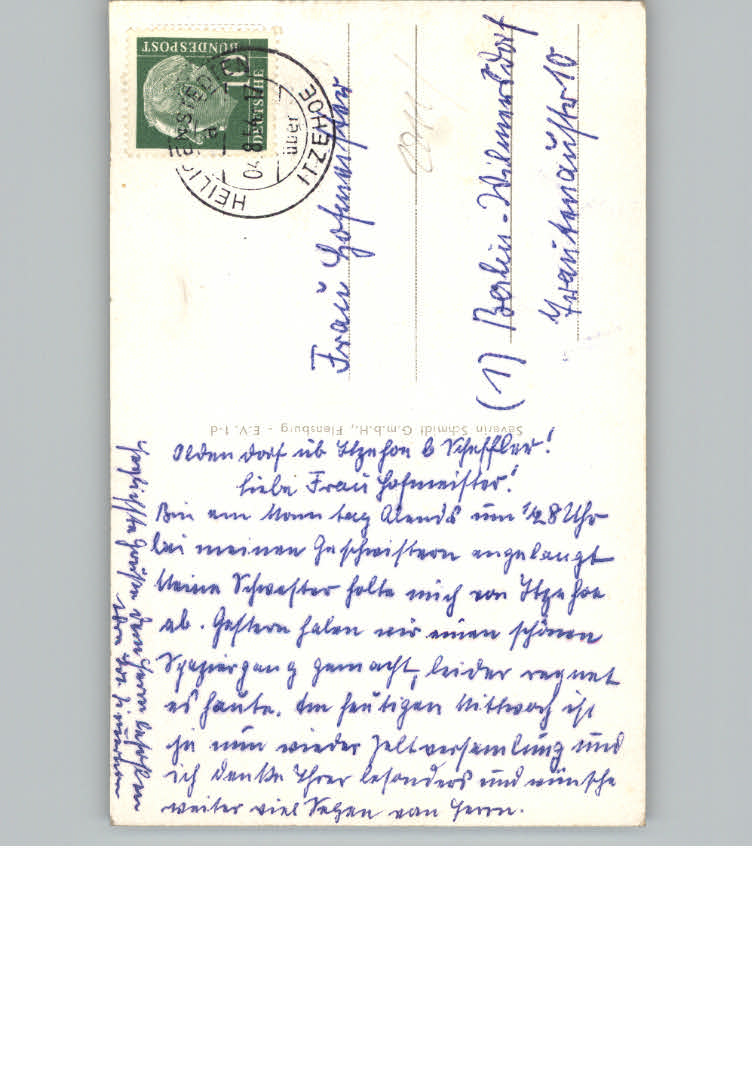 DEUTSCHE
BUNDESPOST
10
HEILIGENSTEDTEN
über
ITZEHOE
a
04.8.54-17
Frau Hofmeister
(1) Berlin-Wilmersdorf
Trautenaustr 10
Severin Schmidt G.m.b.H., Flensburg - E.V. 1-d
Oldendorf üb Itzehoe b Scheffler!
Liebe Frau Hofmeister!
Bin am Monntag Abends um 1/28 Uhr
bei meinen Geschwistern angelangt
Meine Schwester holte mich von Itzehoe
ab. Gestern haben wir einen schönen
Spaziergang gemacht, leider regnet
es heute. Am heutigen Mittwoch ist
ja nun wieder Zeltversamlung und
ich denke Ihrer besonders und wünsche
weiter viel Segen vom Herrn.
Herzlichste Grüße dem Herrn befohlen
Ihre